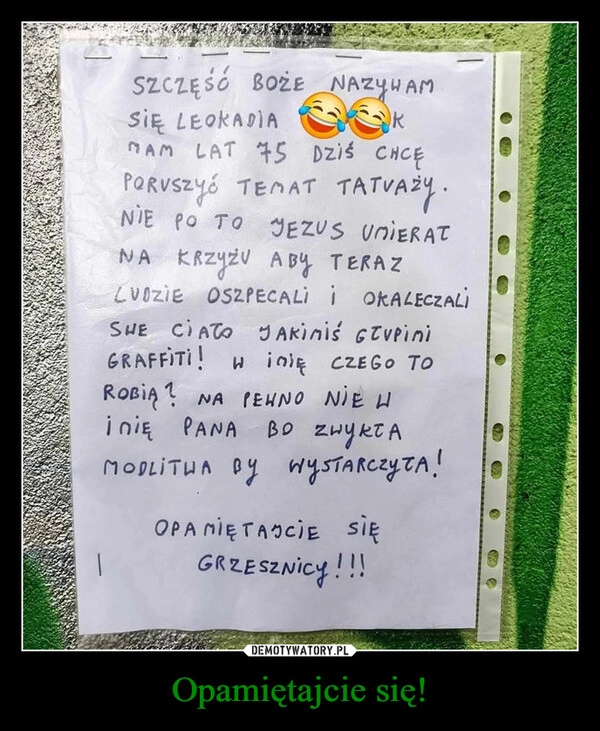 SZCZĘŚĆ BOŻE NAZYWAM
SIĘ LEOKADIA 😂😂K
MAM LAT 75 DZIŚ CHCĘ
PORUSZYĆ TEMAT TATUAŻY.
NIE PO TO JEZUS UMIERAŁ
NA KRZYŻU ABY TERAZ
LUDZIE OSZPECALI i OKALECZALI
SWE CIAŁO JAKIMIŚ GŁUPIMI
GRAFFITI! W IMIĘ CZEGO TO
ROBIĄ? NA PEWNO NIE W
IMIĘ PANA BO ZWYKŁA
MODLITWA BY WYSTARCZYŁA!
OPAMIĘTAJCIE SIĘ
GRZESZNICY!!!
DEMOTYWATORY.PL
Opamiętajcie się!